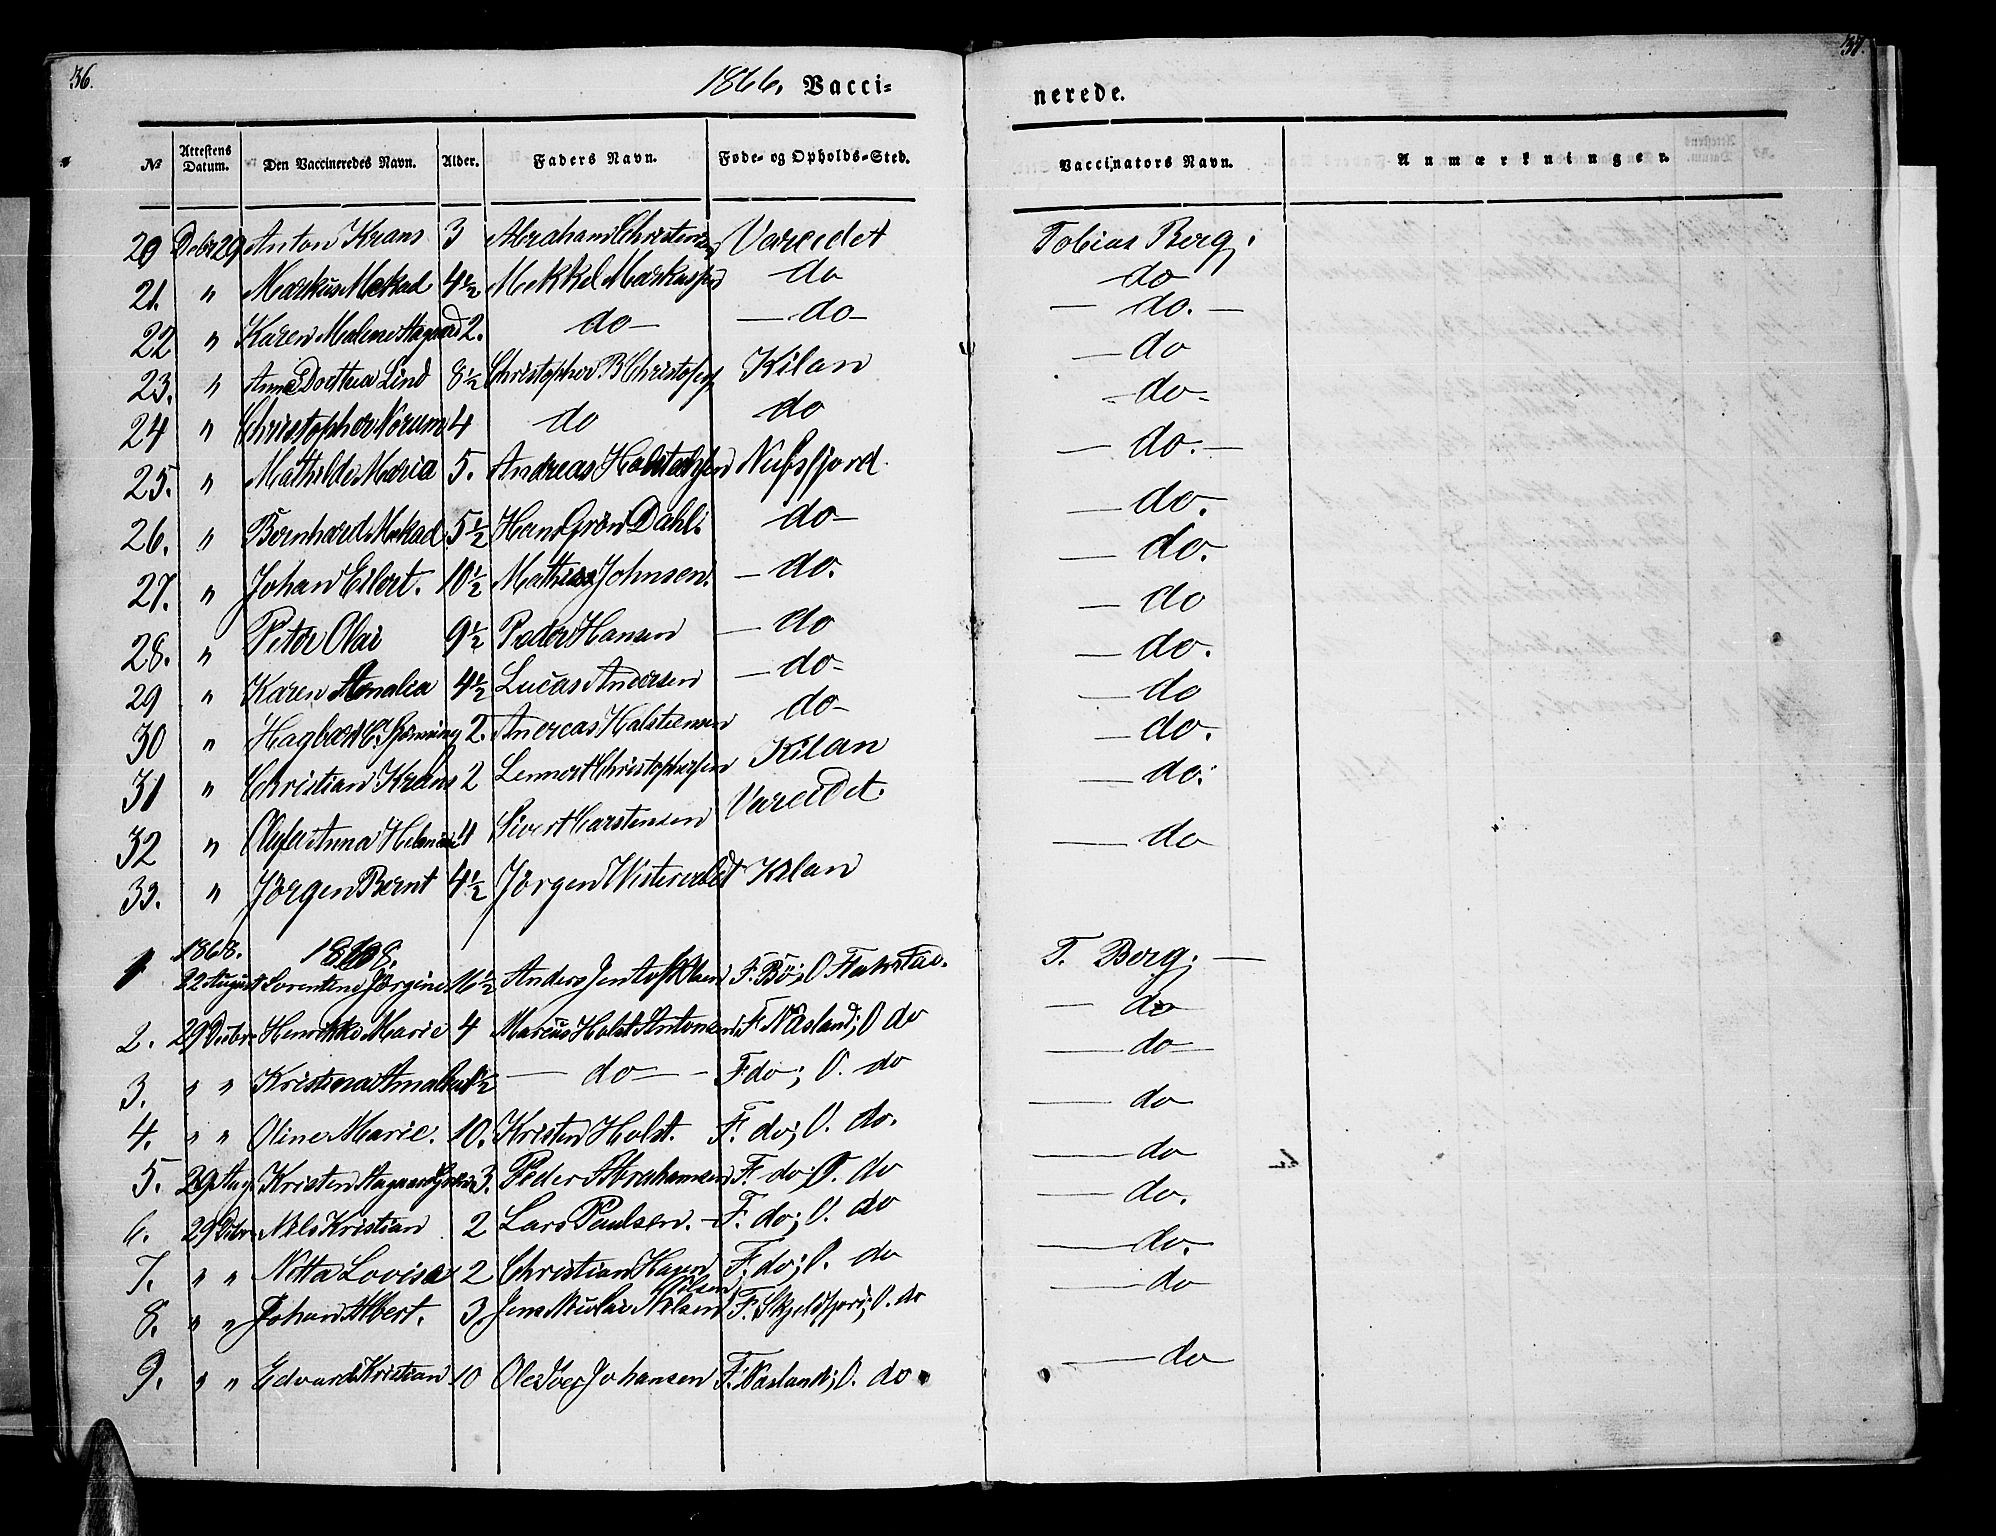 36.
37.
1866. Vacci=
nerede.
No Attestens Datum. Den Vaccineredes Navn. Alder. Faders Navn. Føde- og Opholds-Sted. Vaccinators Navn. Anmærkninger.
20 Debr 29 Anton Krans 3 Abraham Christensen Vareidet Tobias Berg.
21. " Markus Mekad 4½ Mekkel Markussen do do
22 " Karen Malene Aagaard 2. do — — do — — do. —
23. " Anne Dorthea Lind 8½ Christopher B Christofers Kilan — do
24 " Christopher Norum 4 do do — do -
25. " Mathilde Maria 5. Andreas Halstensen Nusfjord — do. —
26. " Bernhard Mekad 5½ Hans Grøn Dahl. do — — do.
27. " Johan Eilert. 10½ Mathias Johnsen. — do. — do.
28. " Peter Olai 9½ Peder Hansen — do — do
29 " Karen Amalia 4½ Lucas Andersen — do - — do.
30 " Hagbart C. 2. Anereas Halstensen do - — do
31 " Christian Krans 2 Lennert Christophersen Kilan — do.
32 " Olufa Anna 4 Sivert Carstensen Vareidet. — do.
33. " Jørgen Bernt 4½ Jørgen Kilan — do
1868. 1868.
1 22 August Lorentine Jørgine 16½ Anders Jentoft Olsen F. Bø; O Flakstad. T. Berg. —
2. 29 Debr Henrikke Marie 4 Marcus Holst Antonsen F. Næsland; O do — do
3. " " Kristiana Amalia ½ — do — - F. do; O. do — do —
4. " " Oline Marie. 10. Kristen Holst. F. do; O. do. — do
5. 29 Aug Kristen Aagaard 3. Peder Abrahamsen F. do; O. do — do
6. 29 Debr Nils Kristian 2 Lars Paulsen. — F. do; O. do — do.
7. " " Netta Lovise 2 Christian Hagen F. do; O. do — do.
Nilsen
8. " " Johan Albert. 3. Jens Nicolai Nilsen F. Skjeldfjord; O. do — do
9. " " Edvard Kristian 10 Ole Iver Johansen F. Næsland; O. do — do